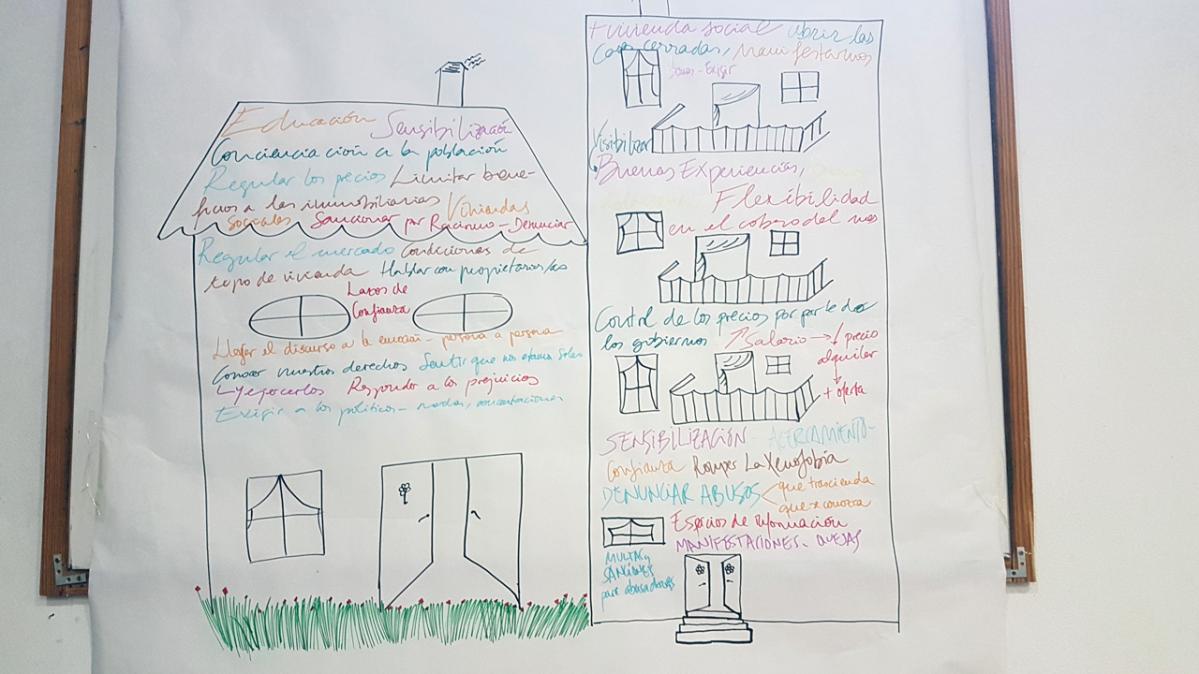 Educación Sensibilización
Concienciación a la población
Regular los precios Limitar bene-
ficios a las inmobiliarias Viviendas
Sociales Sancionar por Racismo - Denunciar
Regular el mercado Condiciones de
tipo de vivienda Hablar con propietarios/as
Lazos de
Confianza
el discurso a la emoción - persona a persona
Conocer nuestros derechos Sentir que no estamos solas
y ejercerlos Responder a los prejuicios
Exigir a los políticos
+ vivienda social abrir las
casas cerradas, manifestarnos
- Exigir
Visibilizar
Buenas Experiencias,
Flexibilidad
en el cobro del mes
Control de los precios por parte de
los gobiernos Salario → ↓ precio
alquiler
+ oferta
SENSIBILIZACIÓN - ACERCAMIENTO -
Confianza Romper La Xenofobia
DENUNCIAR ABUSOS < que trascienda
que se conozca
Espacios de información
MANIFESTACIONES - QUEJAS
MULTAS y
SANCIONES
para abusadores